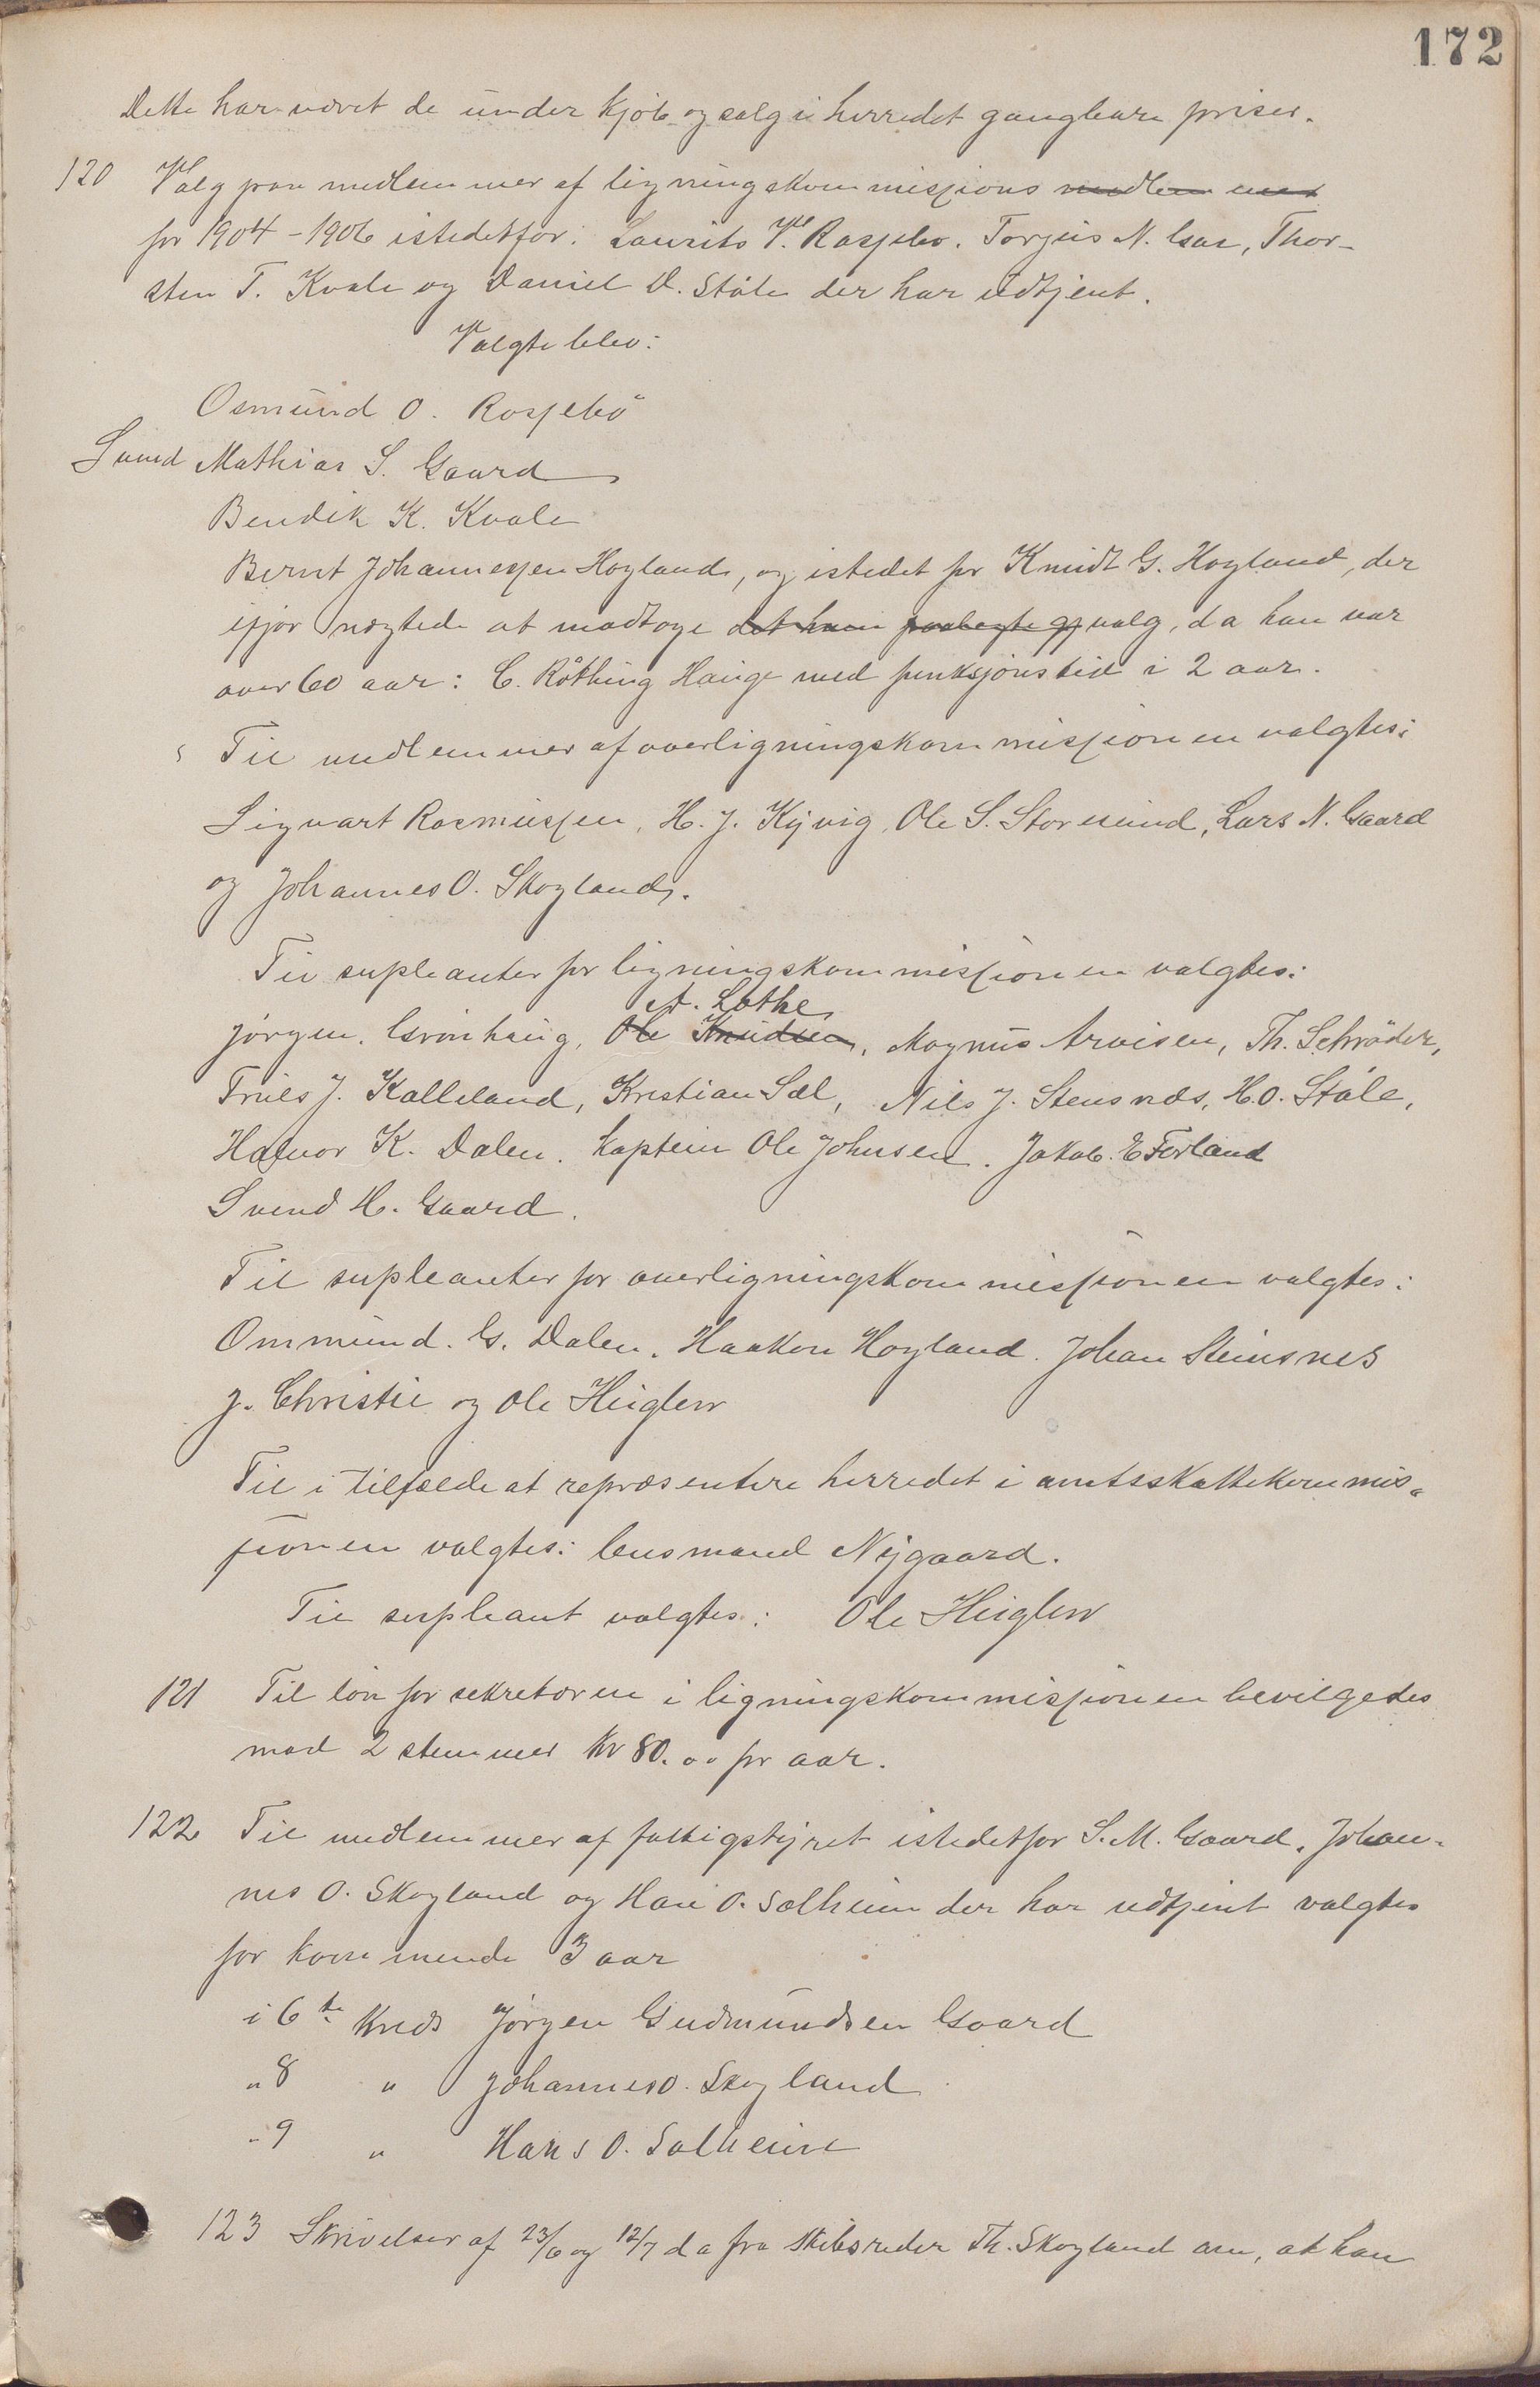 172
Dette har været de under kjøb og salg i herredet gangbare priser.
120 Valg paa medlemmer af ligningskommissjons medlemmer
for 1904-1906 istedetfor: Laurits V. Rossebø. Torgius N. Gaa, Thor-
sten T. Kvale og Daniel D. Ståle der har udtjent.
Valgte blev:
Osmund O. Rossebö
Svend Mathias S. Gaard
Bendik K. Kvale
Bernt Johannessen Høyland, og istedet for Knudt G. Høyland, der
ifjor nægtede at modtage det ham paalagte valg, da han var
over 60 aar: C. Röthing Hauge med funksjonstid i 2 aar.
Til medlemmer af overligningskommissjonen valgtes:
Sigvart Rasmussen, H. J. Kyvig, Ole S. Storesund, Lars N. Gaard
og Johannes O. Skogland.
Til supleanter for ligningskommissjonen valgtes:
A. Lothe
Jørgen Grønhaug, Ole Knudsen, Magnus Arvesen, Th. Schröder,
Truls J. Kalleland, Kristian Sæl, Nils J. Stensnæs, H.O. Ståle,
Halvor K. Dalen. kaptein Ole Johnsen. Jakob E Førland
Svend H. Gaard.
Til supleanter for overligningskommissjonen valgtes:
Ommund. G. Dalen. Haakon Høyland. Johan Steinsnes
J. Christie og Ole Heiglen
Til i tilfælde at repræsentere herredet i amtsskattekommis-
sjonen valgtes: lensmand Nygaard.
Til supleant valgtes: Ole Heiglen
121 Til løn for sekretæren i ligningskommissjonen bevilgedes
mod 2 stemmer Kr 80.00 pr aar.
122 Til medlemmer af fattigstyret istedetfor S. M. Gaard, Johan-
nes O. Skogland og Hans O. Solheim der har udtjent valgtes
for kommende 3 aar
i 6te Kreds Jørgen Gudmundsen Gaard
" 8 " Johannes O. Skogland
" 9 " Hans O. Solheim
123 Skrivelser af 23/6 og 12/7 d a fra skibsreder Th. Skogland om, at han